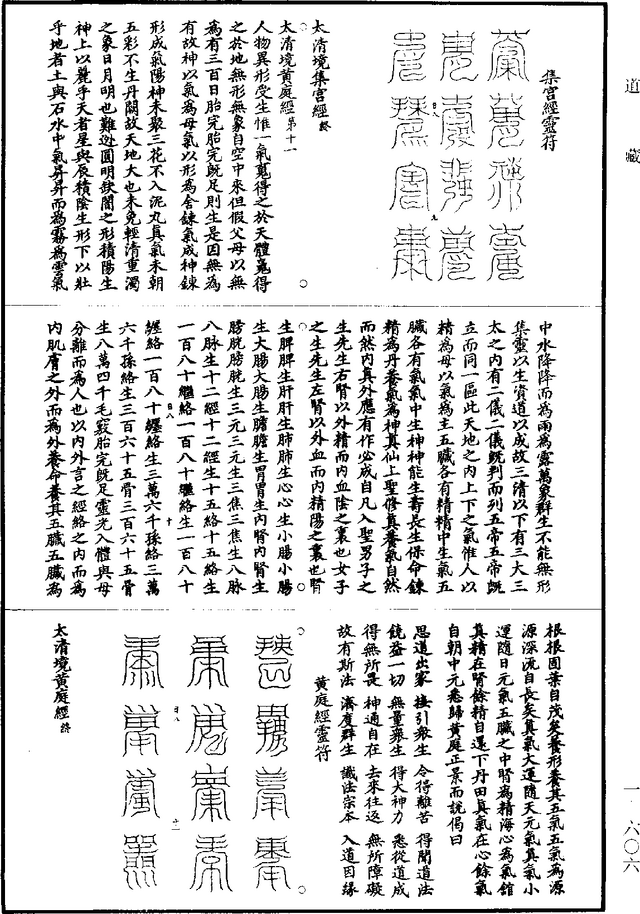 道藏
集宮經靈符
太清境集宮經終
太清境黃庭經第十一
人物異形受生惟一氣㝵得之於天體㝵得
之於地無形無象自空中來但假父母以無
為有三百日胎完胎完既足則生是因無為
有故神以氣為母氣以形為舍鍊氣成神鍊
形成氣陽神未聚三花不入泥丸真氣未朝
五彩不生丹闕故天地大也未免輕清重濁
之象日月明也難逃圓明缺闇之形積陽生
神上以麗乎天者星與辰積陰生形下以壯
乎地者土與石水中氣昇昇而為霧為雲氣
中水降降而為雨為露萬象群生不能無形
集靈以生資道以成故三清以下有三大三
太之內有二儀二儀既判而列五帝五帝既
立而同一區此天地之內上下之氣惟人以
精為母以氣為主五臟各有精精中生氣五
臟各有氣氣中生神神能生壽長生保命鍊
精為丹養氣為神真仙上聖修真養氣自然
而然內真外應有作必成自凡入聖男子之
生先生右腎以外精而內血陰之裏也女子
之生先生左腎以外血而內精陽之裏也腎
生脾脾生肝肝生肺肺生心心生小腸小腸
生大腸大腸生膽膽生胃胃生內腎內腎生
膀胱膀胱生三元三元生三焦三焦生八脉
八脉生十二經十二經生十五絡十五絡生
一百八十繼絡一百八十繼絡生一百八十
纏絡一百八十纏絡生三萬六千孫絡三萬
六千孫絡生三百六十五骨三百六十五骨
生八萬四千毛竅胎完既足靈光入體與母
分離而為人也以內外言之經絡之內而為
內肌膚之外而為外養命養其五臟五臟為
根根固葉自茂矣養形養其五氣五氣為源
源深流自長矣真氣大運隨天元氣真氣小
運隨日元氣五臟之中腎為精海心為氣館
真精在腎餘精自還下丹田真氣在心餘氣
自朝中元悉歸黃庭正景而說偈曰
思道出家 接引眾生 令得離苦 得聞道法
饒益一切 無量眾生 得大神力 悉從道成
得無所畏 神通自在 去來往返 無所障礙
故有斯法 濟度群生 識法宗本 入道因緣
黃庭經靈符
太清境黃庭經終
一·六〇六